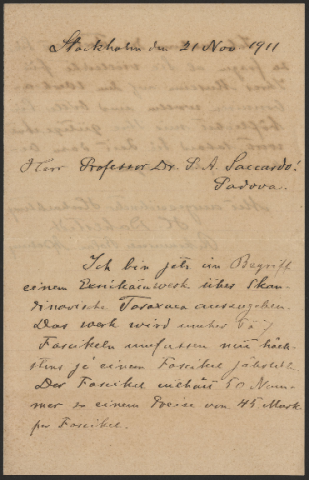 Stockholm den 21 Nov 1911
Herr Professor Dr. P. A. Saccardo!
Padova.
Ich bin jetz im Begriff
einem Exsikatwerk über Skan-
dinavische Taraxaca auszugeben.
Das werk wird
Fascikeln umfassen mit höch-
stens je einem Fascikel jährlich.
Der Fascikel enthält 50 Num-
mer zu einem Preise von 45 Mark
per Fascikel.